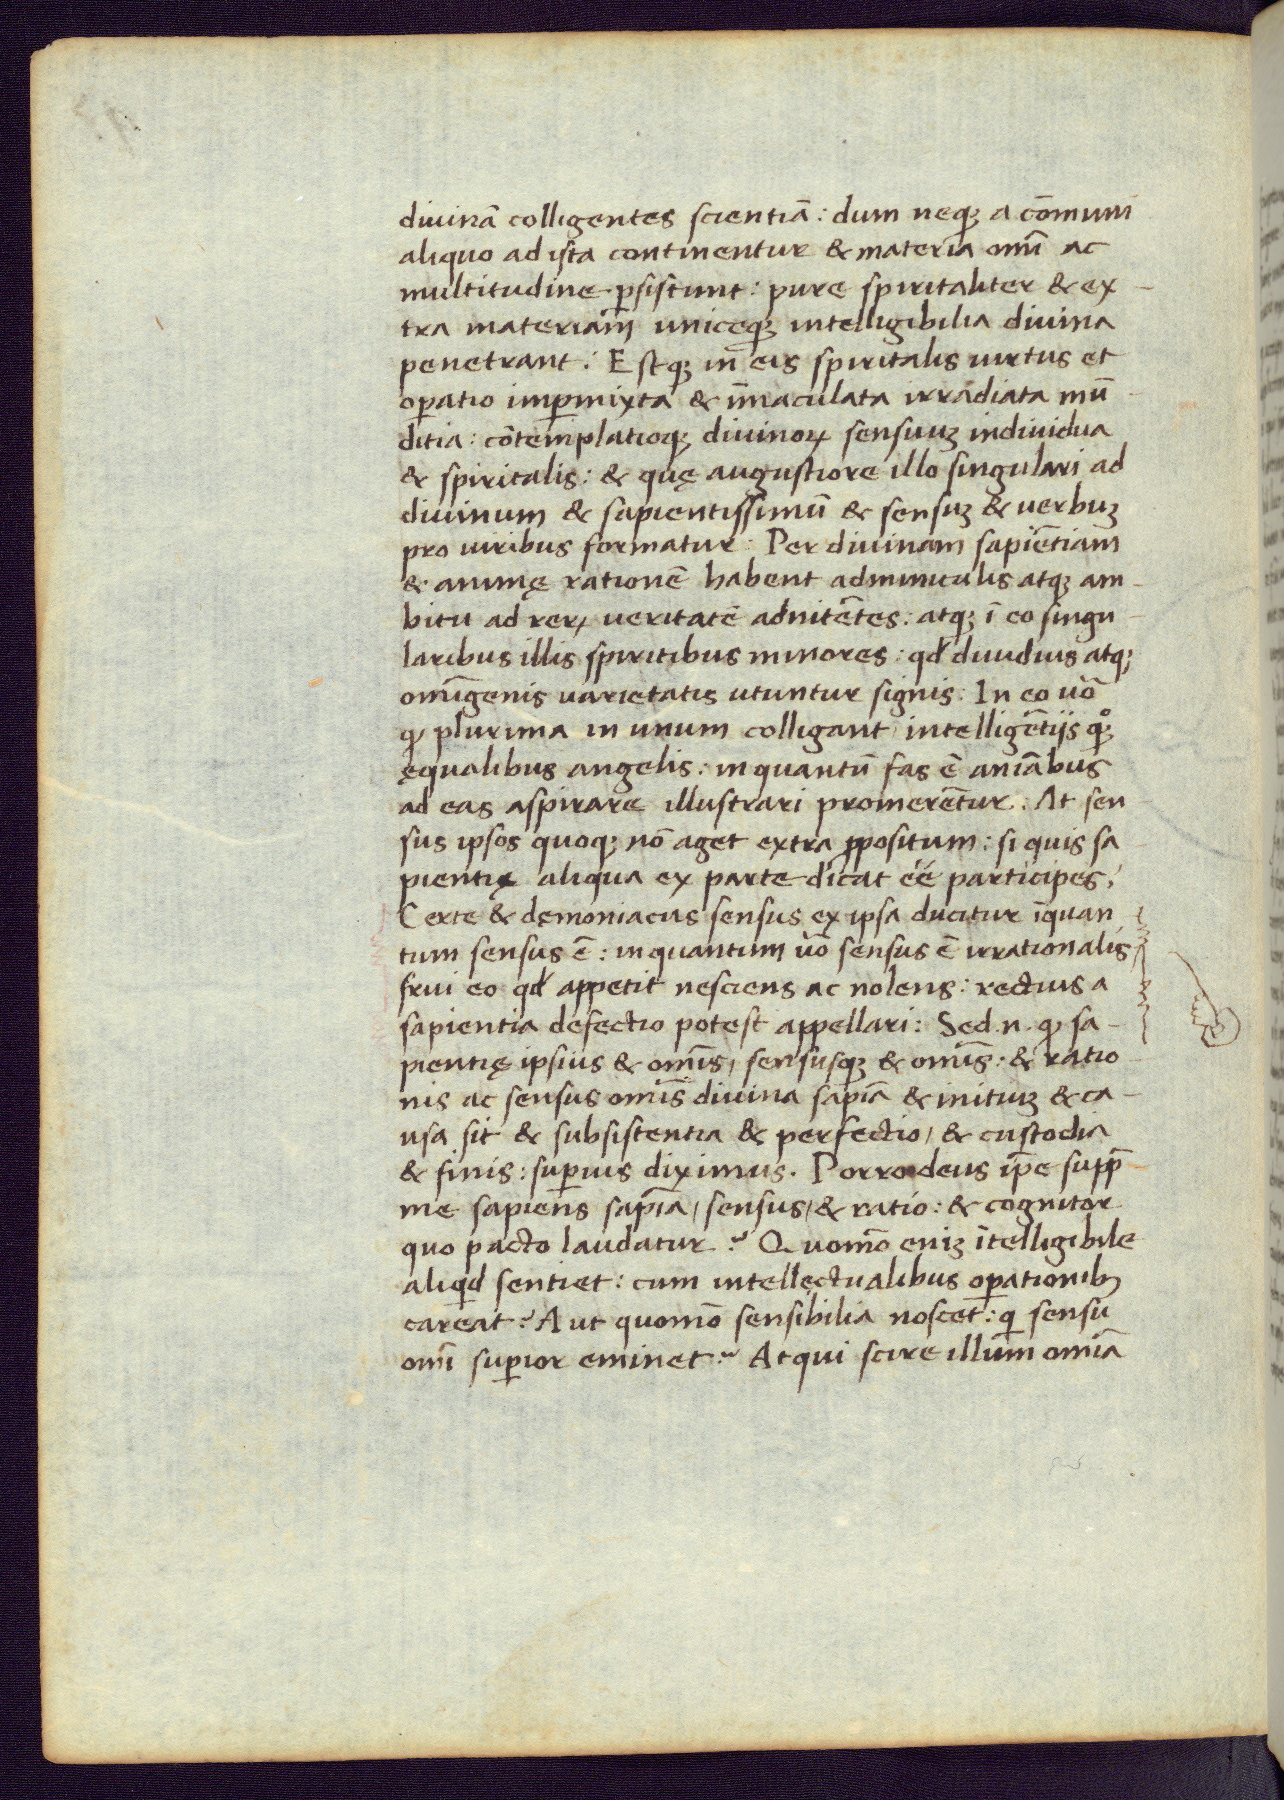 diuinā colligentes scientiā: dum neqꝫ a cōmuni
aliquo ad ista continentur & materia omī ac
multitudine ꝑsistunt: pure spiritaliter & ex-
tra materiam uniceqꝫ intelligibilia diuina
penetrant: Estqꝫ in eis spiritalis uirtus et
oꝑatio imꝑmixta & īmaculata irradiata mū-
ditia: cōtemplatioqꝫ diuinoꝝ sensuuꝫ indiuidua
& spiritalis: & quę augustiore illo singulari ad
diuinum & sapientissimū & sensuꝫ & uerbuꝫ
pro uiribus formatur: Per diuinam sapiētiam
& animę rationē habent adminiculis atqꝫ am-
bitu ad reꝝ ueritatē adnitētes: atqꝫ ī eo singu-
laribus illis spiritibus minores: qđ diuiduis atqꝫ
omīgenis uarietatis utuntur signis: In eo uō
ꝙ plurima in unum colligant intelligētijs qꝫ
ęqualibus angelis: in quantū fas ē aniābus
ad eas aspirare illustrari promerētur: At sen-
sus ipsos quoqꝫ nō aget extra ꝓpositum: si quis sa-
pientię aliqua ex parte dicat éé participes;
Certe & dęmoniacus sensus ex ipsa ducitur īquan
tum sensus ē: in quantum uō sensus ē irrationalis,
frui eo qđ appetit nesciens ac nolens: rectius a
sapientia defectio potest appellari: Sed.n. ꝙ sa-
pientię ipsius & omīs, sensusqꝫ & omīs: & ratio-
nis ac sensus omīs diuina sapīa & initiuꝫ & ca-
usa sit & subsistentia & perfectio, & custodia
& finis: suꝑius diximus. Porro deus ip̄e supp̄-
me sapiens sapīa, sensus, & ratio: & cognitor
quo pacto laudatur? Quomō eniꝫ ītelligibile
aliqd sentiet: cum intellectualibus oꝑationibꝫ
careat? Aut quomō sensibilia noscet: qi sensu
omī suꝑior eminet? Atqui scire illum omīa